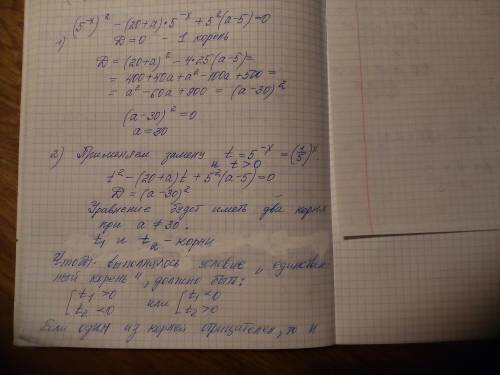 1) (5⁻ˣ)² - (20+a)·5⁻ˣ + 5²(a-5)=0
D=0 - 1 корень
D=(20+a)² - 4·25(a-5)=
= 400+40a+a²-100a+500 =
= a²-60a+900 = (a-30)²
(a-30)²=0
a=30
2) Применяем замену t=5⁻ˣ=(1/5)ˣ.
и t>0
t²-(20+a)t+5²(a-5)=0
D=(a-30)²
Уравнение будет иметь два корня
при a≠30.
t₁ и t₂ - корни
Чтобы выполнялось условие "единствен-
ный корень", должно быть:
[t₁>0 или [t₁<0
[t₂<0 [t₂>0
Если один из корней отрицателен, то и